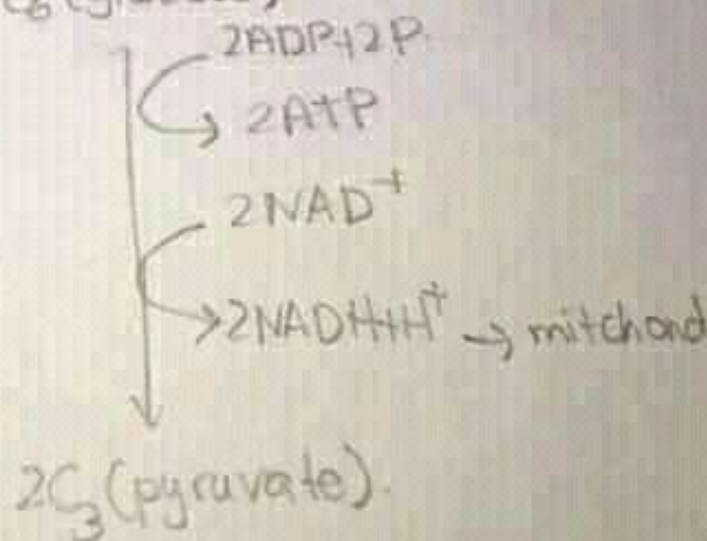 2ADP+2P
2ATP
2NAD⁺
2NADH+H⁺ → mitchond
2C₃ (pyruvate).